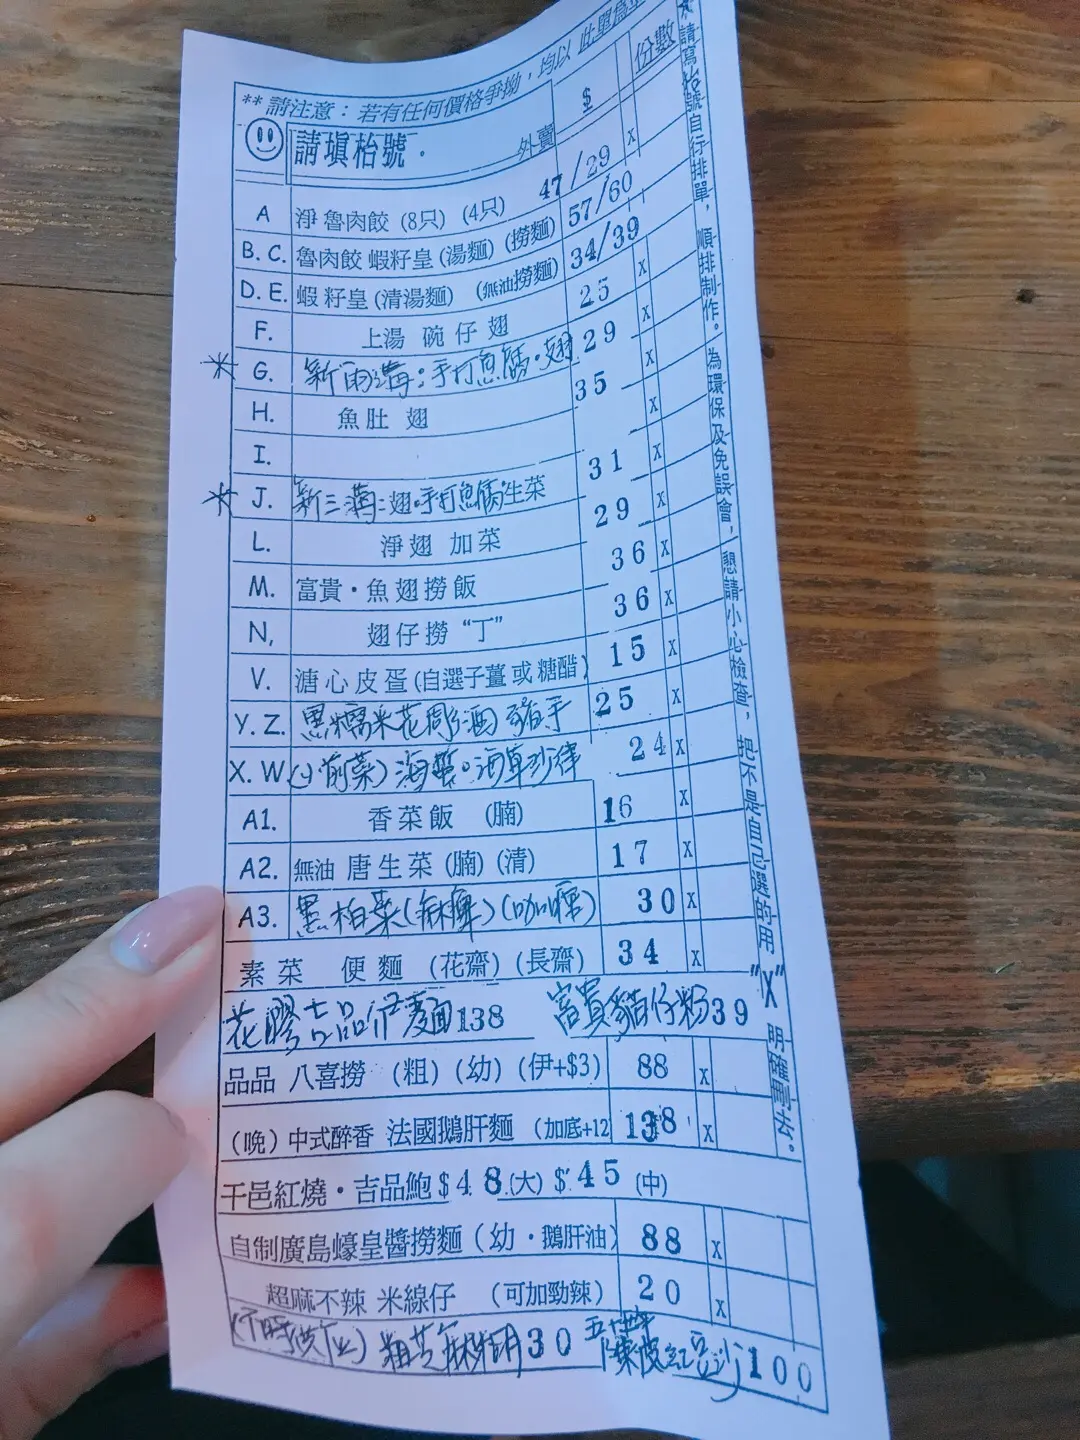 ** 請注意：若有任何價格爭拗，均以 此單為
請填枱號． 外賣 $ x 份數
A 淨 魯肉餃 (8只) (4只) 47/29
B. C. 魯肉餃 蝦籽皇 (湯麵) (撈麵) 57/60
D. E. 蝦籽皇 (清湯麵) (無油撈麵) 34/39
F. 上湯 碗仔翅 25 x
* G. 新兩溝：手打魚腐・翅 29 x
H. 魚肚 翅 35 x
I. x
* J. 新三溝：翅・手打魚腐・生菜 31 x
L. 淨翅 加菜 29 x
M. 富貴・魚翅撈飯 36 x
N, 翅仔撈“丁” 36 x
V. 溏心皮蛋(自選子薑或糖醋) 15 x
Y. Z. 黑糯米花彫酒 豬手 25 x
X. W. (小前菜) 海蜇。 24 x
A1. 香菜飯 (腩) 16 x
A2. 無油 唐生菜 (腩) (清) 17 x
A3. 黑柏菜 (咖喱) 30 x
素菜 便麵 (花齋) (長齋) 34 x
花膠吉品伊麵 138 富貴貓仔粉 39
品品 八喜撈 (粗) (幼) (伊+$3) 88 x
(晚) 中式醉香 法國鵝肝麵 (加底+12 138 x
干邑紅燒・吉品鮑 $48 (大) $45 (中)
自制廣島蠔皇醬撈麵 (幼・鵝肝油) 88 x
超麻不辣 米線仔 (可加勁辣) 20 x
(不時供應) 粗芝麻糊 30 五十年 陳皮紅豆沙 100
*請寫枱號自行排單，順排制作。為環保及免誤會，懇請小心檢查，把不是自己選的用“X”明確刪去。